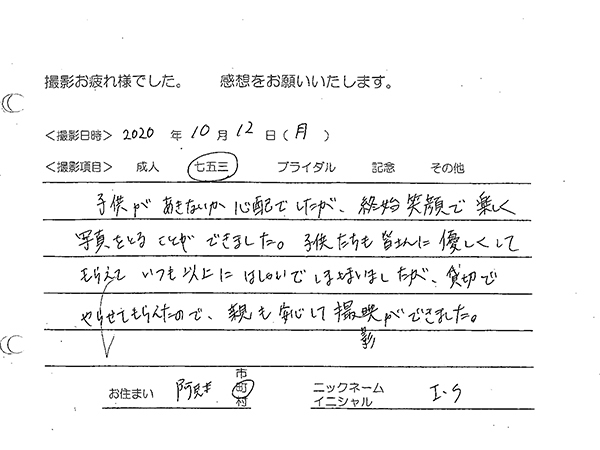 撮影お疲れ様でした。 感想をお願いいたします。
<撮影日時> 2020 年 10 月 12 日 ( 月 )
<撮影項目> 成人 七五三 ブライダル 記念 その他
子供があきないか心配でしたが、終始笑顔で楽しく
写真をとることができました。子供たちも皆さんに優しくして
もらえて いつも以上に はしゃいでしまいましたが、貸切で
やらせてもらえたので、親も安心して撮影ができました。
お住まい 阿見 市町村 ニックネーム イニシャル I・S